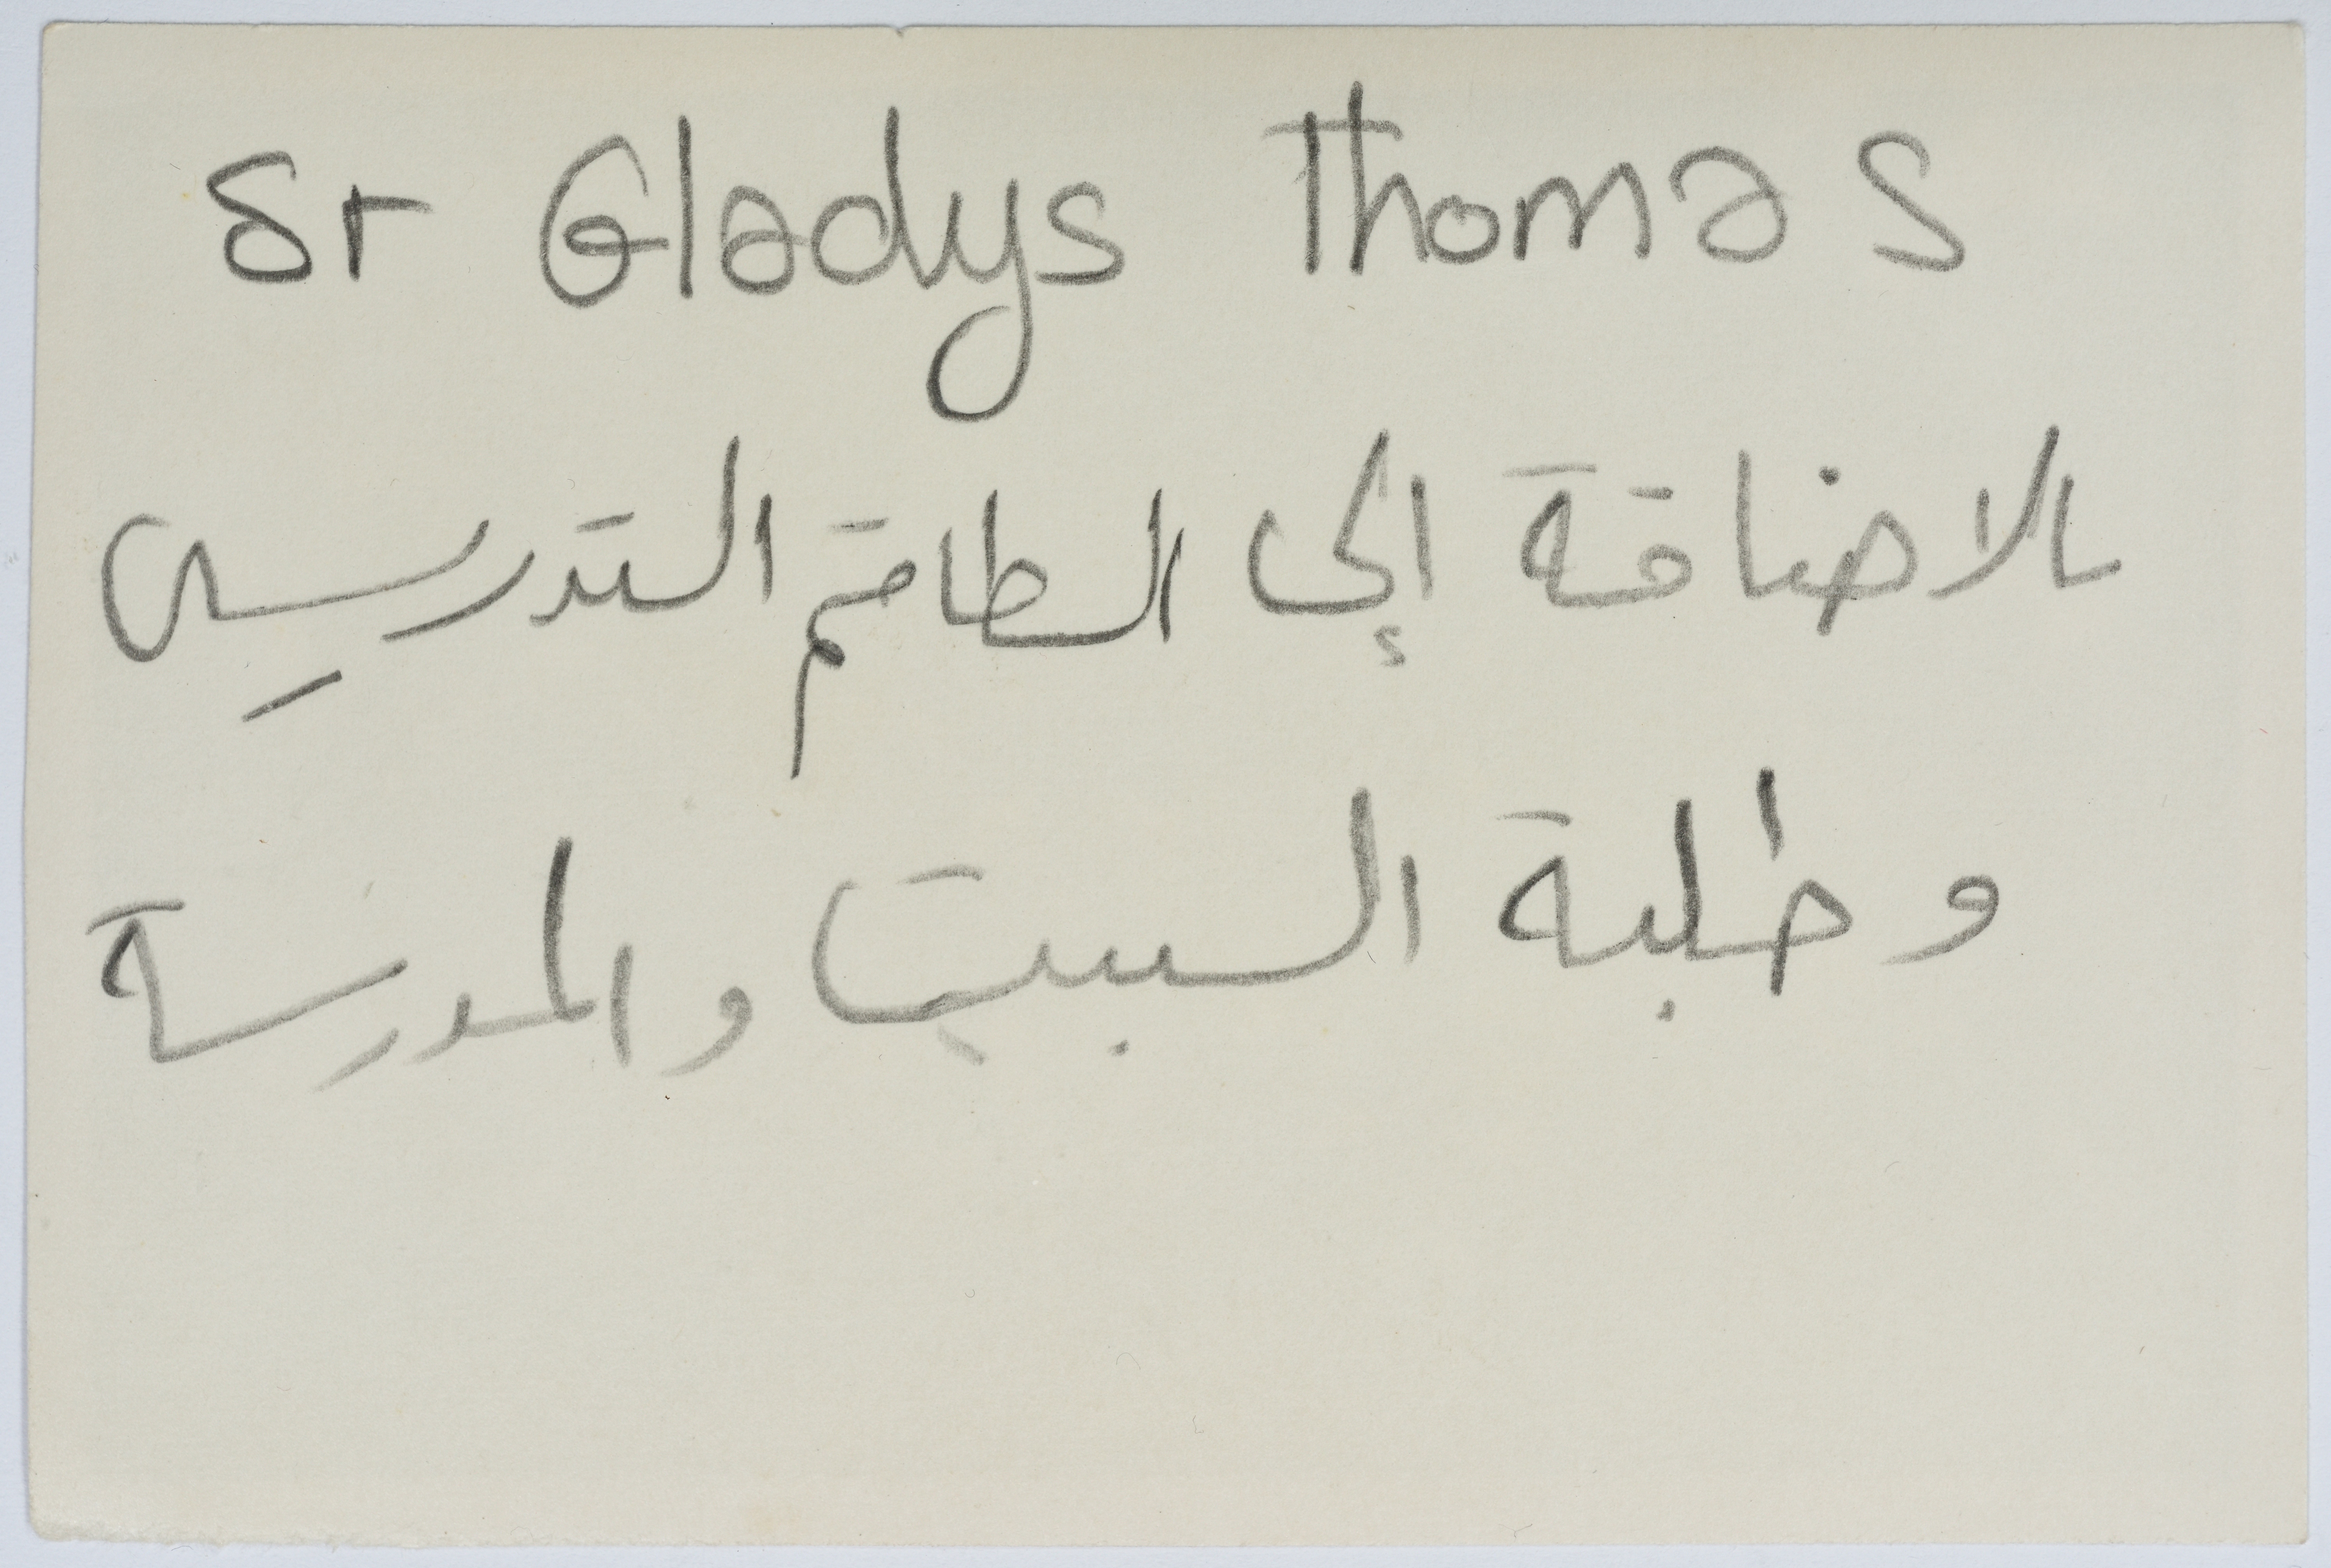 Sr Gladys Thomas
بالاضافة إلى الطاقم التدريسي
و طلبة البيت والمدرسة